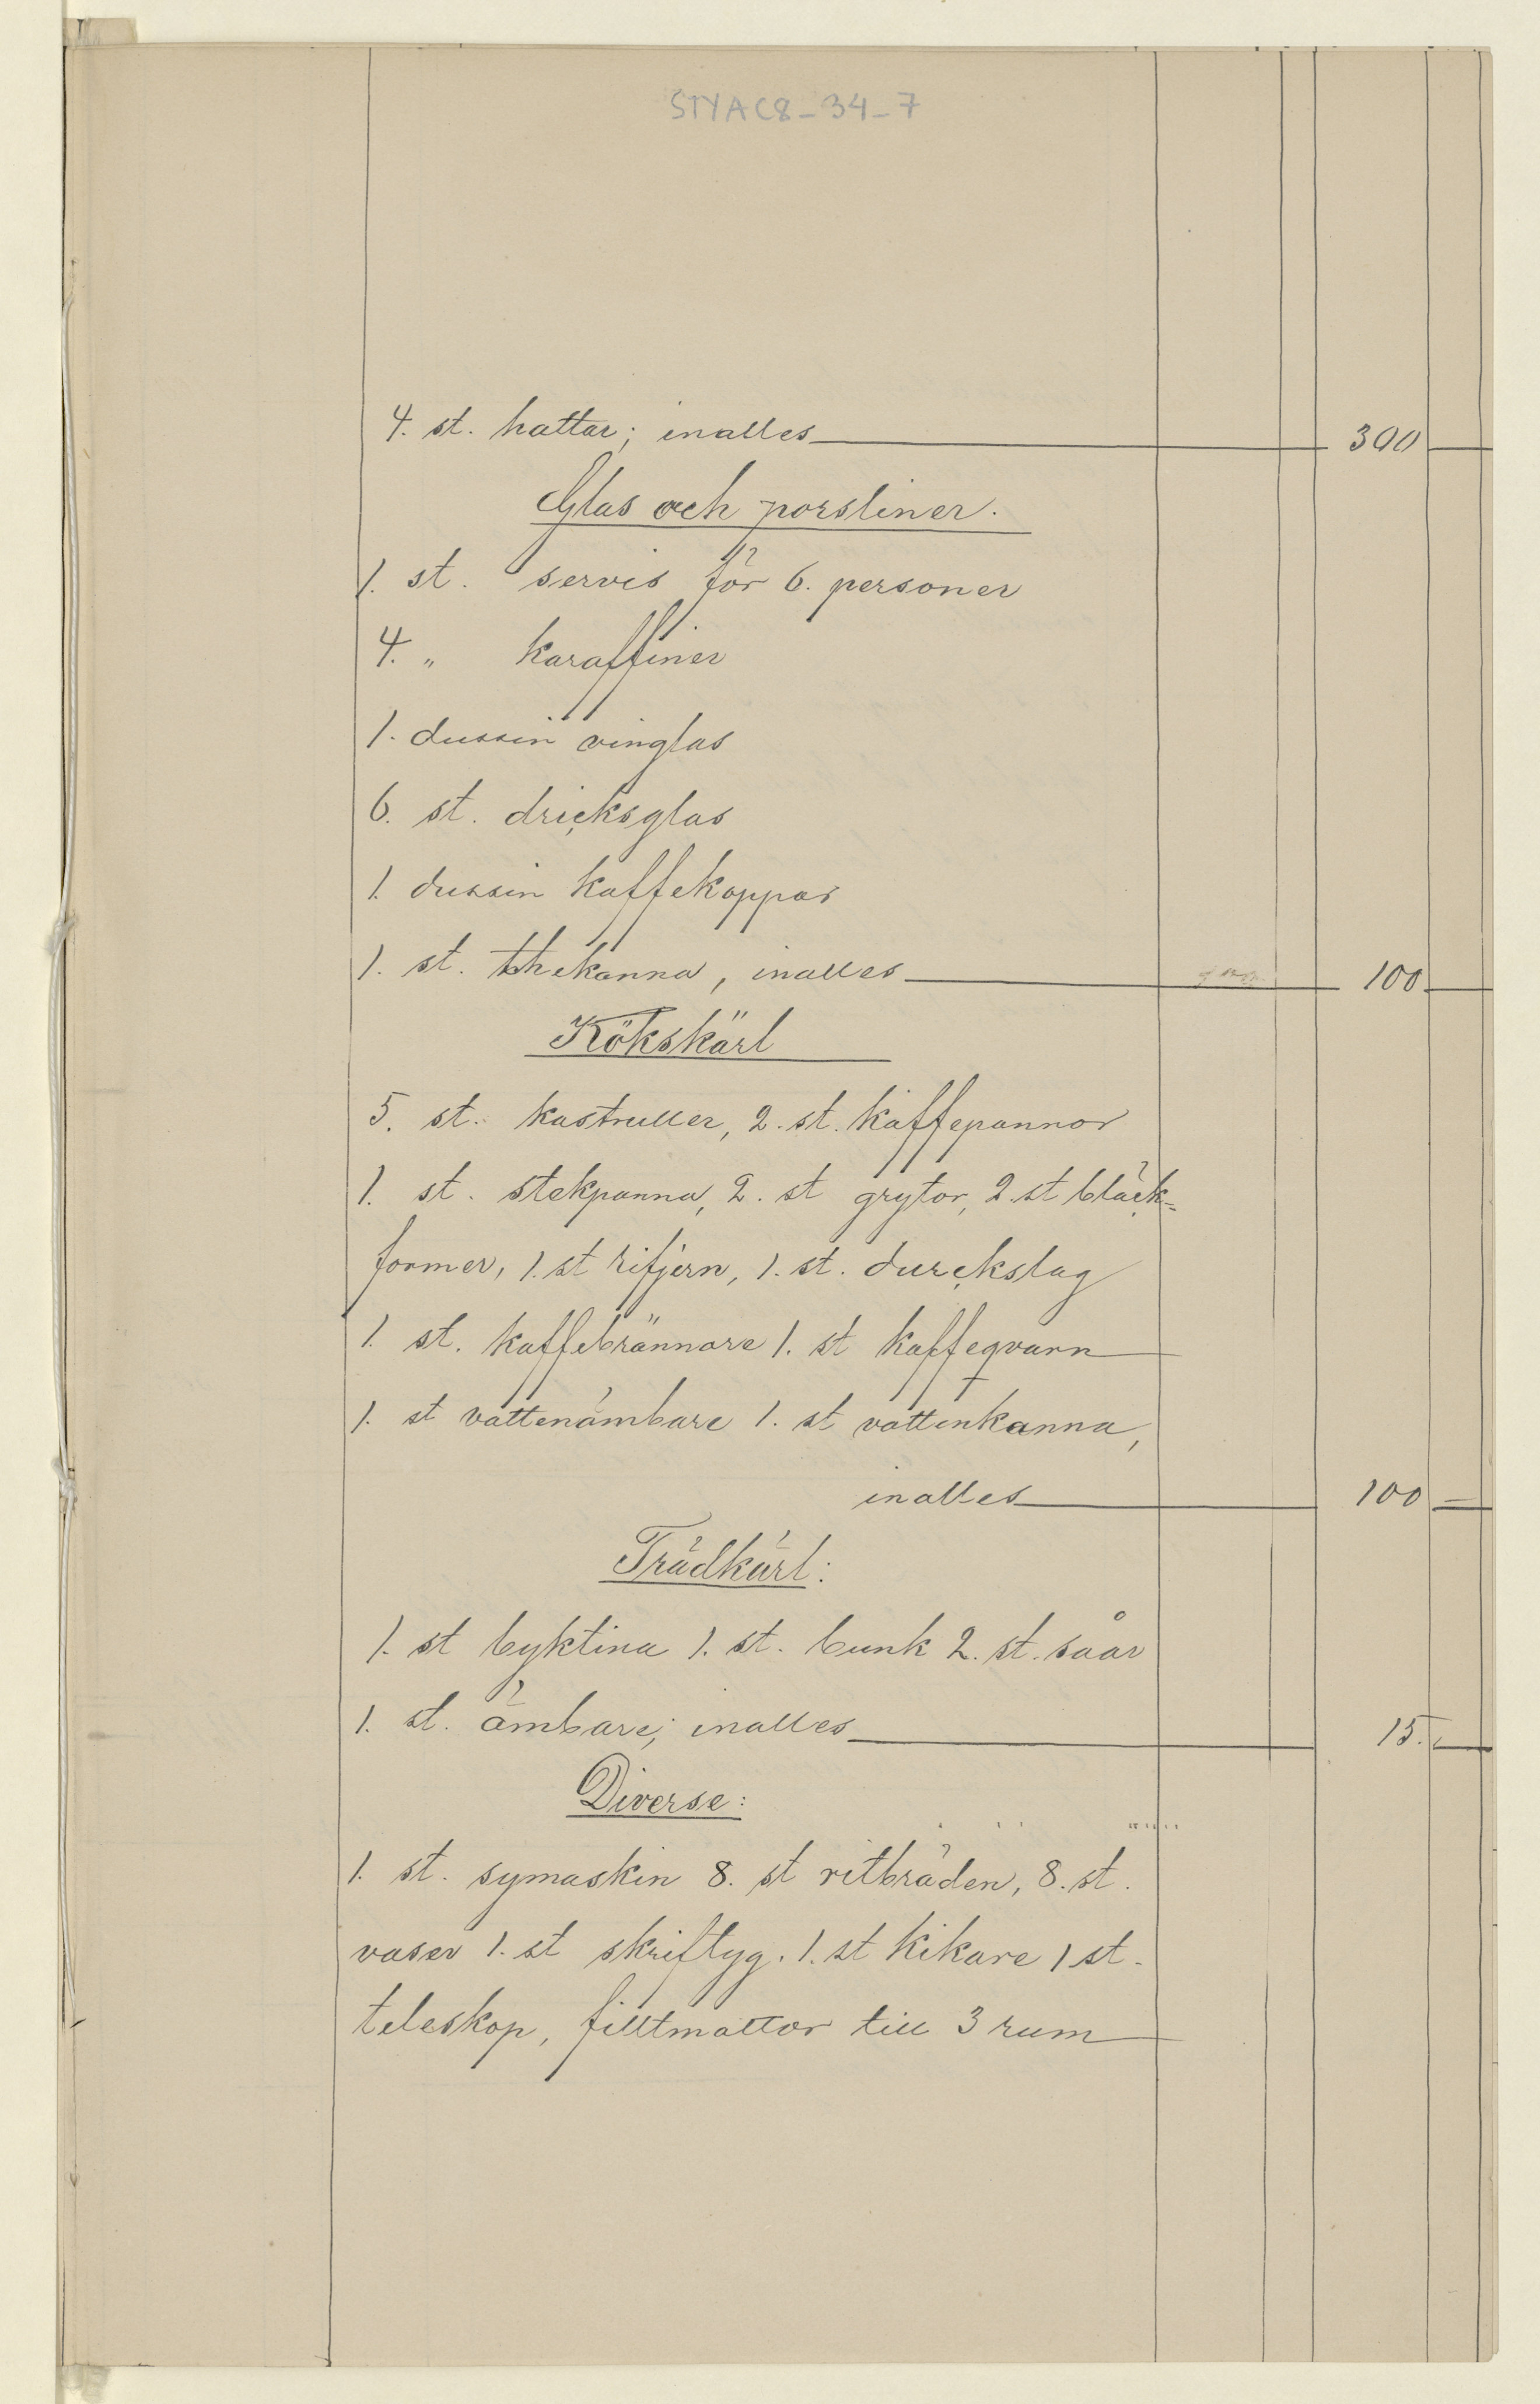 STYAC8_34_7
4. st. hattar; inalles 300
Glas och porsliner.
1. st. servis för 6. personer
4. " karaffiner
1. dussin vinglas
6. st. dricksglas
1. dussin kaffekoppar
1. st. thekanna, inalles 100
Kökskärl
5. st. kastruller, 2. st. kaffepannor
1. st. stekpanna, 2. st grytor, 2. st bläck-
former, 1. st rifjern, 1. st. durckslag
1. st. kaffebrännare 1. st kaffeqvarn
1. st vattenämbare 1. st vattenkanna,
inalles 100
Trädkärl:
1. st byktina 1. st. bunk 2. st. såar
1. st. ämbare; inalles 15.
Diverse:
1. st. symaskin 8. st ritbräden, 8. st.
vaser 1. st skriftyg. 1. st kikare 1 st.
teleskop, filtmattor till 3 rum